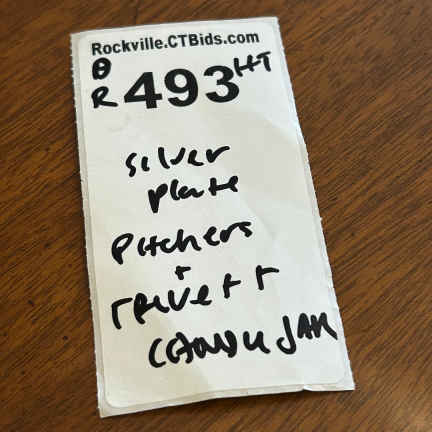 Rockville.CTBids.com
θ
R 493 HT
silver
plate
Pitchers
+
JAR